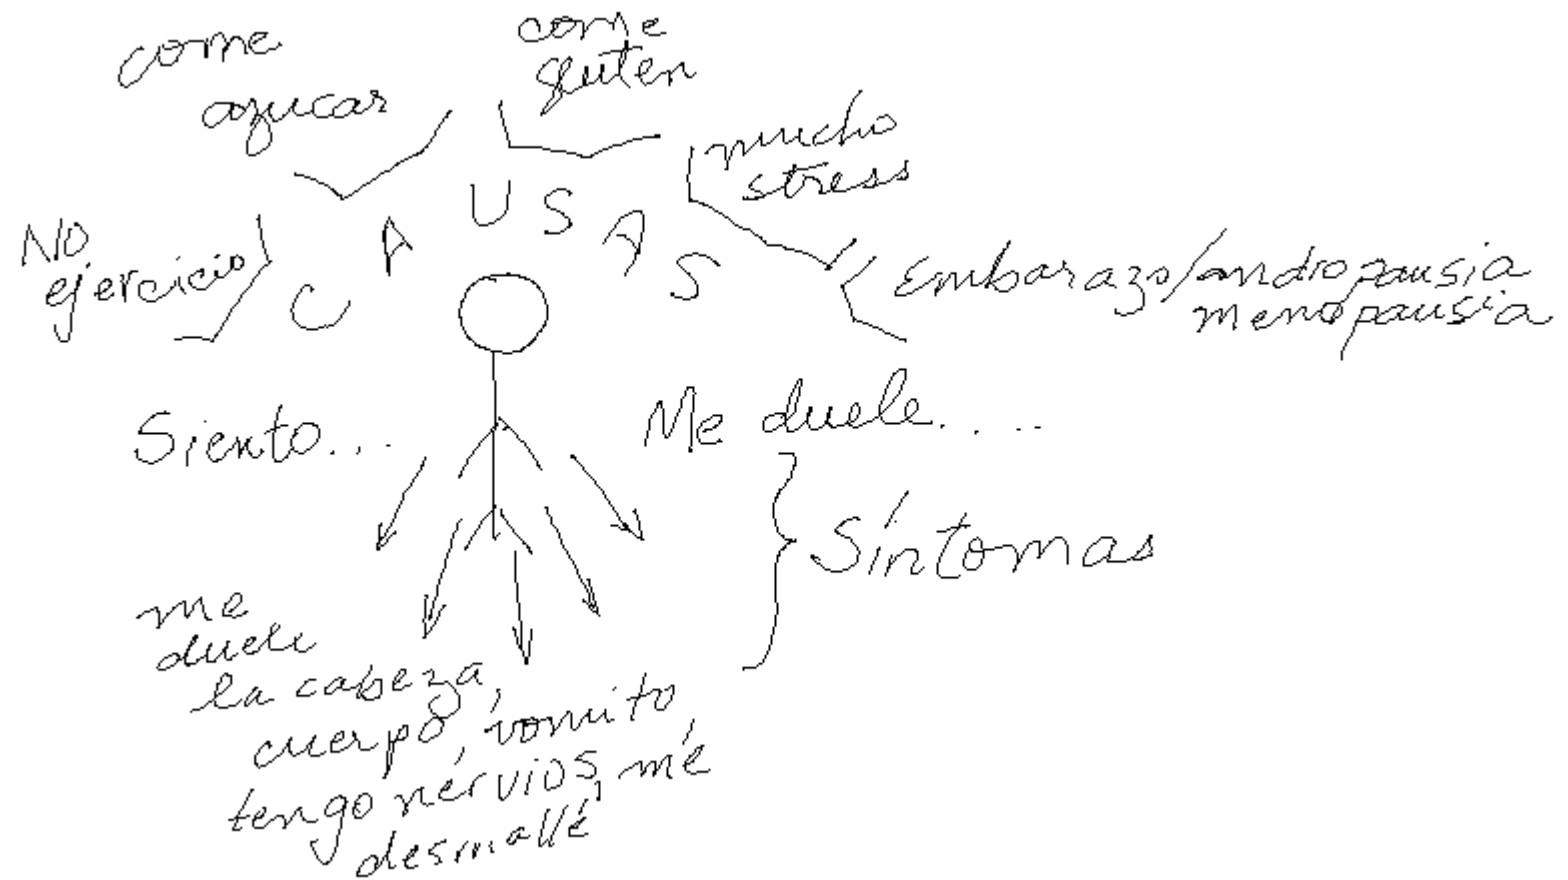 come
azucar
come
gluten
mucho
stress
NO
ejercicio
CAUSAS
Embarazo/andropausia
menopausia
Siento...
Me duele.....
Síntomas
me
duele
la cabeza,
cuerpo, vomito,
tengo nérvios, me
desmallé